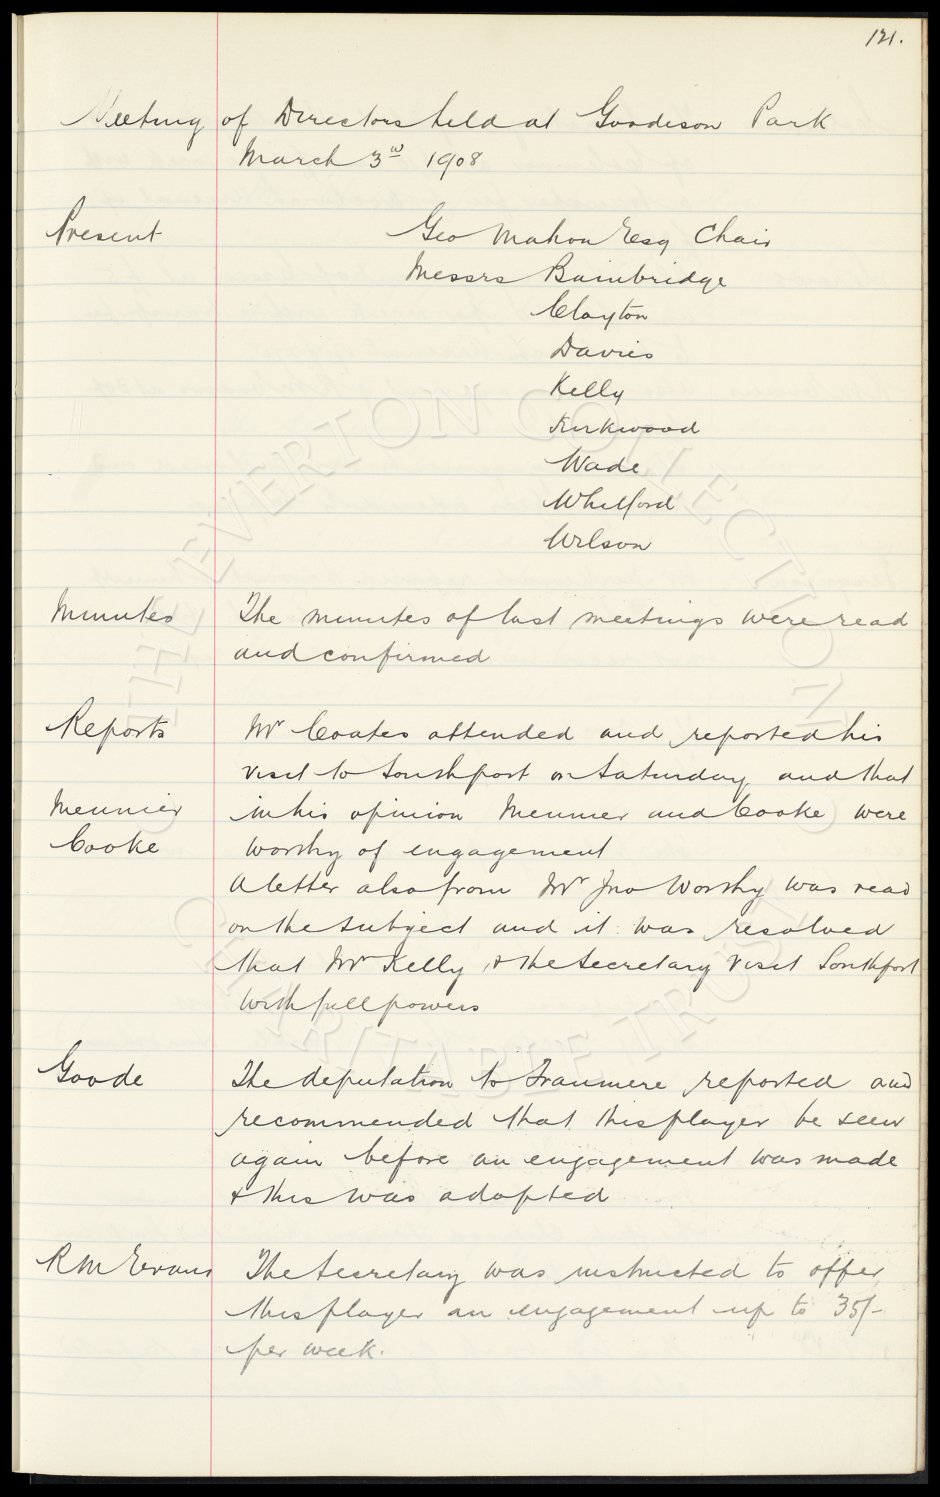 121.
Meeting of Directors held at Goodison Park
March 3rd 1908
Present Geo Mahon Esq Chair
Messrs Bainbridge
Clayton
Davies
Kelly
Kirkwood
Wade
Whitford
Wilson
Minutes The minutes of last meetings were read
and confirmed
Reports Mr Coates attended and reported his
visit to Southport on Saturday and that
Meunier in his opinion Meunier and Cooke were
Cooke worthy of engagement
A letter also from Mr Jno Worthy was read
on the subject and it was resolved
that Mr Kelly & the Secretary visit Southport
with full powers
Goode The deputation to Tranmere reported and
recommended that this player be seen
again before an engagement was made
& this was adopted
R M Evans The Secretary was instructed to offer
this player an engagement up to 35/-
per week.
THE EVERTON COLLECTION
CHARITABLE TRUST